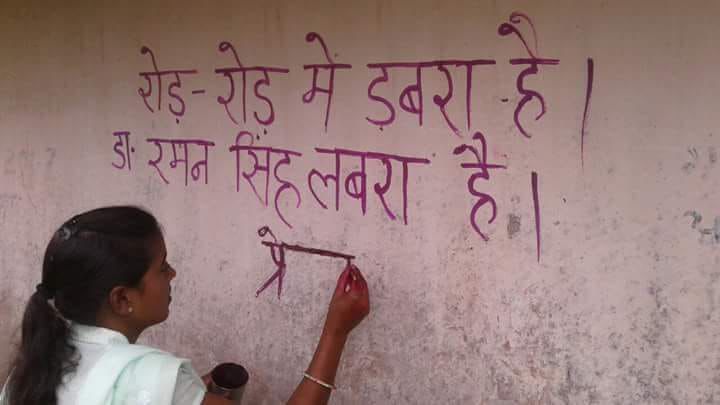 रोड़-रोड़ में ड़बरा है।
डा. रमन सिंह लबरा है।
प्रे